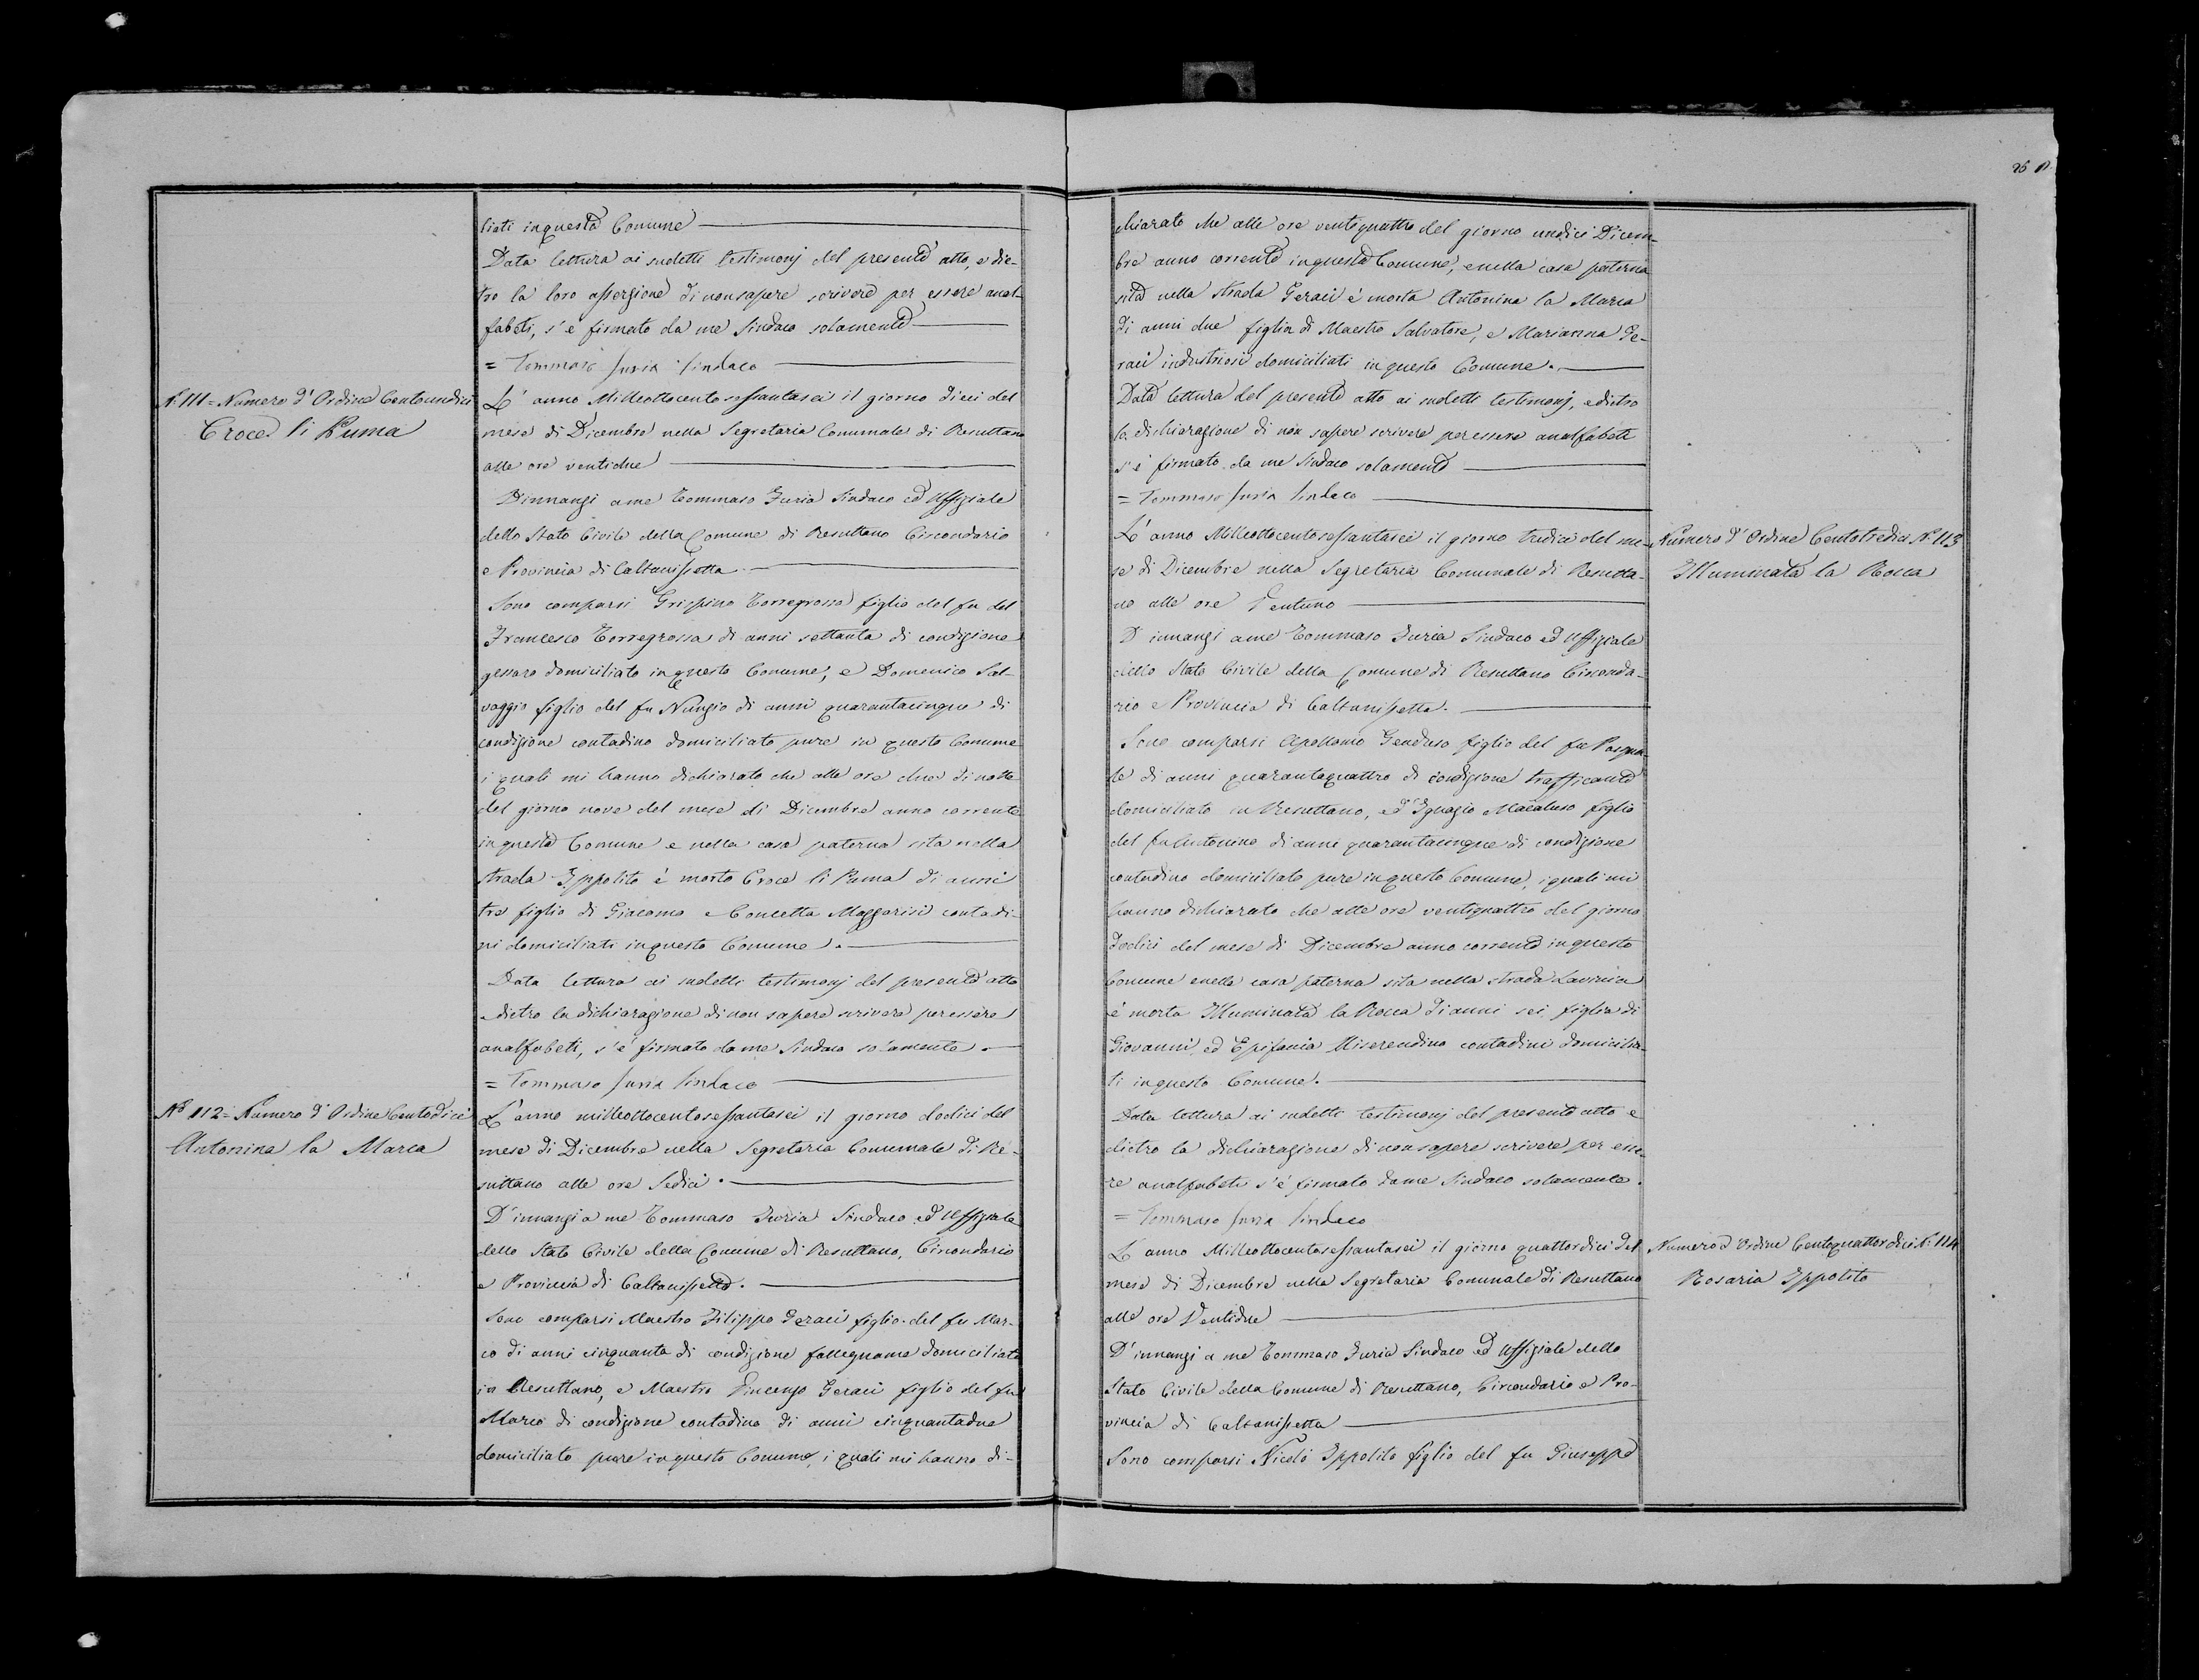 25
liati in questa Comune
Data lettura ai sudetti testimonj del presente atto, e die-
tro la loro assersione di non sapere scrivere per essere anal-
fabeti, s'è firmato da me Sindaco solamente
= Tommaso Furia Sindaco
N. 111 = Numero d'Ordine Centoundici
Croce li Puma
L'anno Milleottocentosessantasei il giorno dieci del
mese di Dicembre nella Segretaria Comunale di Resuttano
alle ore ventidue
Dinnanzi a me Tommaso Furia Sindaco ed Uffiziale
dello Stato Civile della Comune di Resuttano Circondario
e Provincia di Caltanissetta
Sono comparsi Grispino Torregrossa figlio del fu del
Francesco Torregrossa di anni settanta di condizione
gessaro domiciliato in questo Comune, e Domenico Sel-
vaggio figlio del fu Nunzio di anni quarantacinque di
condizione contadino domiciliato pure in questo Comune
i quali mi hanno dichiarato che alle ore due di notte
del giorno nove del mese di Dicembre anno corrente
in questa Comune e nella casa paterna sita nella
strada Ippolito è morto Croce li Puma di anni
tre figlio di Giacomo e Concetta Mazzarisi contadi-
ni domiciliati in questo Comune.
Data lettura ai sudetti testimonj del presente atto
e dietro la dichiarazione di non sapere scrivere per essere
analfabeti, s'è firmato da me Sindaco solamente.
= Tommaso Furia Sindaco
N° 112 = Numero d'Ordine Centodici
Antonina la Marca
L'anno milleottocentosessantasei il giorno dodici del
mese di Dicembre nella Segretaria Comunale di Re-
suttano alle ore Sedici.
D'innanzi a me Tommaso Furia Sindaco ed Uffiziale
dello Stato Civile della Comune di Resuttano, Circondario
e Provincia di Caltanissetta.
Sono comparsi Maestro Filippo Geraci figlio del fu Mar-
co di anni cinquanta di condizione fallegname domiciliato
in Resuttano, e Maestro Vincenzo Geraci figlio del fu
Marco di condizione contadino di anni cinquantadue
domiciliato pure in questo Comune, i quali mi hanno di-
chiarato che alle ore ventiquattro del giorno undici Dicem-
bre anno corrente in questa Comune, e nella casa paterna
sita nella strada Geraci è morta Antonina la Marca
di anni due figlia di Maestro Salvatore, e Marianna Ge-
raci industriosi domiciliati in questo Comune.
Data lettura del presente atto ai sudetti testimonj, e dietro
la dichiarazione di non sapere scrivere per essere analfabeti
s'è firmato da me Sindaco solamente
= Tommaso Furia Sindaco
L'anno Milleottocentosessantasei il giorno tredici del me-
se di Dicembre nella Segretaria Comunale di Resutta-
no alle ore Ventuno
Numero d'Ordine Centotredici N. 113
Illuminata la Rocca
D'innanzi a me Tommaso Furia Sindaco ed Uffiziale
dello Stato Civile della Comune di Resuttano Circonda-
rio e Provincia di Caltanissetta.
Sono comparsi Apollonio Genduso figlio del fu Pasqua-
le di anni quarantaquattro di condizione trafficante
domiciliato in Resuttano, ed Ignazio Macaluso figlio
del fu Antonino di anni quarantacinque di condizione
contadino domiciliato pure in questo Comune, i quali mi
hanno dichiarato che alle ore ventiquattro del giorno
dodici del mese di Dicembre anno corrente in questo
Comune e nella casa paterna sita nella strada Lavinia
è morta Illuminata la Rocca di anni sei figlia di
Giovanni, ed Epifania Miserendino contadini domicilia-
ti in questo Comune.
Data lettura ai sudetti testimonj del presente atto e
dietro la dichiarazione di non sapere scrivere per esse-
re analfabeti s'è firmato da me Sindaco solamente.
= Tommaso Furia Sindaco
L'anno Milleottocentosessantasei il giorno quattordici del
mese di Dicembre nella Segretaria Comunale di Resuttano
alle ore Ventidue
Numero d'Ordine Centoquattordici N. 114
Rosaria Ippolito
D'innanzi a me Tommaso Furia Sindaco ed Uffiziale dello
Stato Civile della Comune di Resuttano, Circondario e Pro-
vincia di Caltanissetta
Sono comparsi Nicolò Ippolito figlio del fu Giuseppe